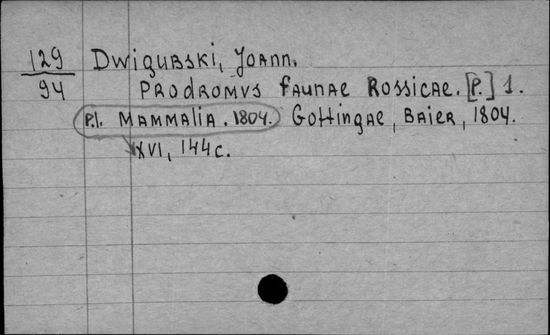 129 Dwigubski, Joann.
94 Prodromvs faunae Rossicae. [P.] 1.
P.1. Mammalia. 1804. Gottingae, Baier, 1804.
XVI, 144 c.